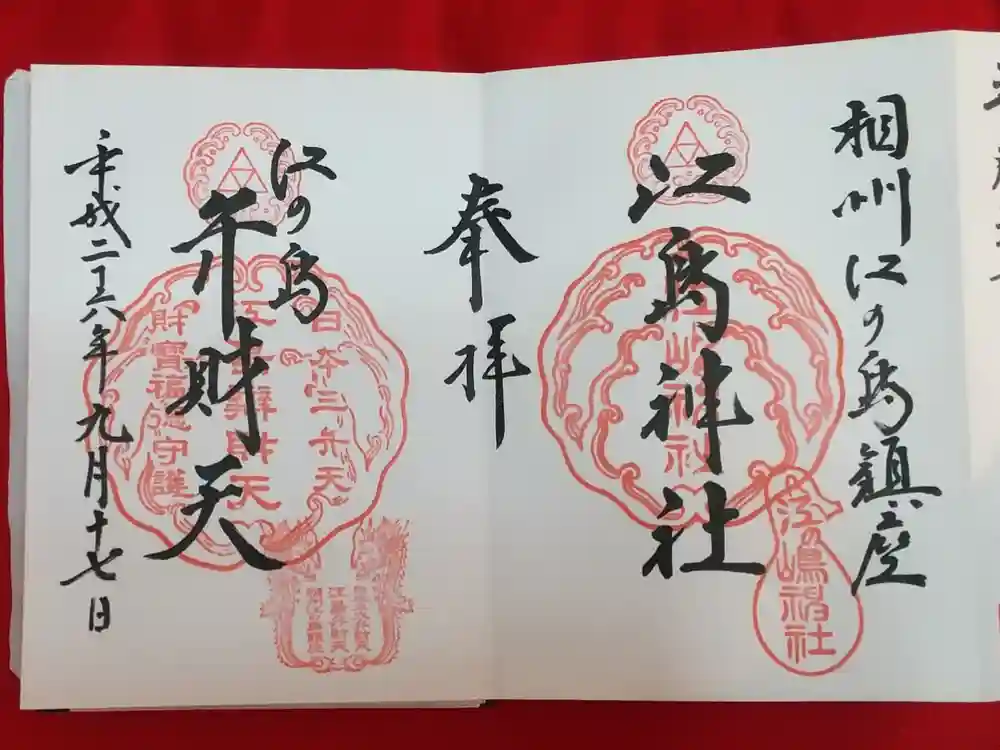 相州江の島鎮座
江島神社
江島神社
江の嶋神社
奉拝
江の島
弁財天
日本三弁天
江島辨財天
財寶福徳守護
平成二十六年九月十七日